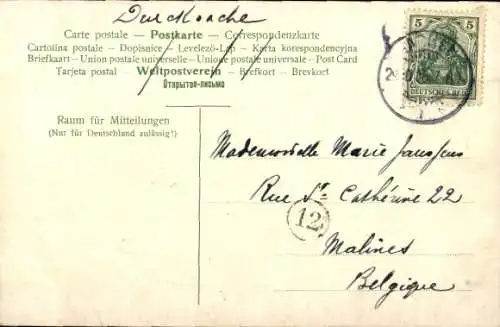 Drucksache
Carte postale — Postkarte — Correspondenzkarte
Cartolina postale — Dopisnice — Levelező-Lap — Karta korespondencyjna
Briefkaart — Union postale universelle — Unione postale universale — Post Card
Tarjeta postal — Weltpostverein — Brefkort — Brevkort
Открытое-письмо
5 5
DEUTSCHES REICH
Raum für Mitteilungen
(Nur für Deutschland zulässig!)
Mademoiselle Marie Janssens
Rue Ste Cathérine 22
12
Malines
Belgique